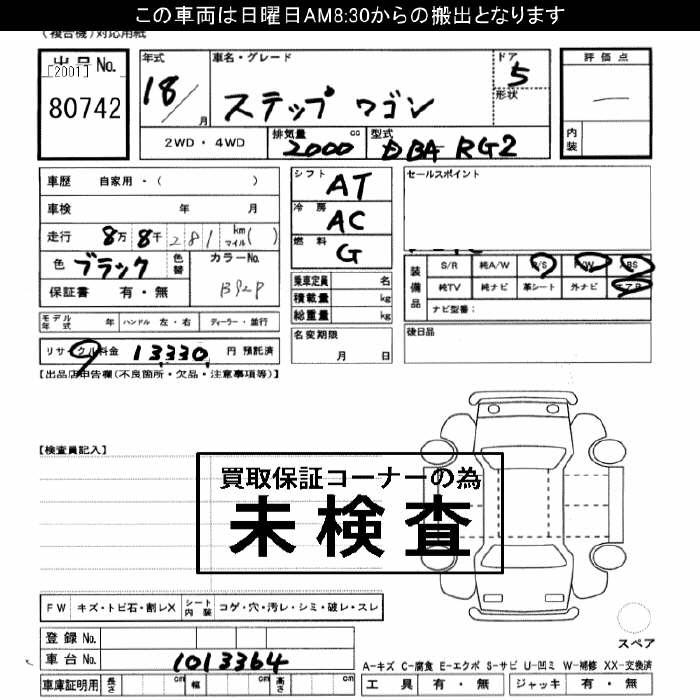 この車両は日曜日AM8:30からの搬出となります
(複合機)対応用紙
出品No.
[2001]
80742
年式 18/ 月
車名・グレード
ステップ ワゴン
ドア 5
形状
評価点
内装
2WD・4WD
排気量 2000 cc
型式 DBA RG2
車歴 自家用・( )
車検 年 月
走行 8万 8千 281 km マイル( )
色 ブラック 色替
カラーNo. B92P
保証書 有・無
シフト AT
冷房 AC
燃料 G
乗車定員 名
積載量 kg
総重量 kg
セールスポイント
装備品
S/R 純A/W P/S P/W ABS
純TV 純ナビ 革シート 外ナビ エアB
ナビ型番:
モデル年式 年 ハンドル 左・右 ディーラー・並行
名変期限
月 日
後日品
リサイクル料金 13,330 円 預託済
【出品店申告欄(不良箇所・欠品・注意事項等)】
【検査員記入】
買取保証コーナーの為
未検査
FW キズ・トビ石・割レX シート内装 コゲ・穴・汚レ・シミ・破レ・スレ
スペア
登録No.
車台No. 1013364
A-キズ C-腐食 E-エクボ S-サビ U-凹ミ W-補修 XX-交換済
車庫証明用 長さ cm 幅 cm 高さ cm
工具 有・無 ジャッキ 有・無